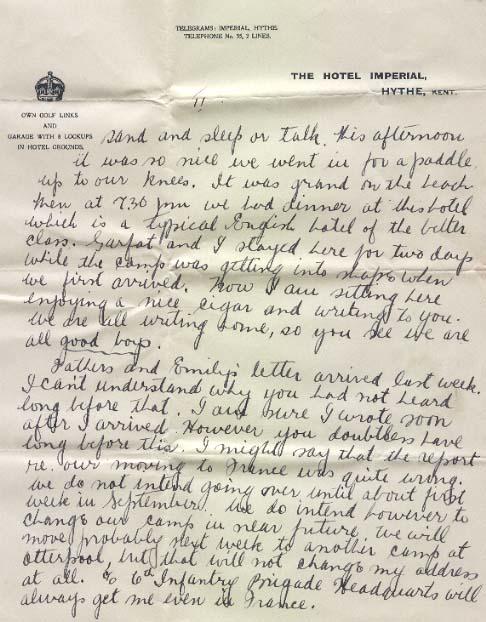 TELEGRAMS: IMPERIAL, HYTHE.
TELEPHONE No. 35, 2 LINES.
THE HOTEL IMPERIAL,
HYTHE, KENT.
OWN GOLF LINKS
AND
GARAGE WITH 8 LOCKUPS
IN HOTEL GROUNDS.
11
sand and sleep or talk. This afternoon
it was so nice we went in for a paddle
up to our knees. It was grand on the beach
then at 7.30 pm we had dinner at this hotel
which is a typical English hotel of the better
class. Garfat and I stayed here for two days
while the camp was getting into shape when
we first arrived. Now I am sitting here
enjoying a nice cigar and writing to you.
We are all writing home, so you see we are
all good boys.
Fathers and Emilys letter arrived last week.
I can't understand why you had not heard
long before that. I am sure I wrote soon
after I arrived. However you doubtless have
long before this. I might say that the report
re. our moving to France was quite wrong.
we do not intend going over until about first
week in September. We do intend however to
change our camp in near future. We will
move probably next week to another camp at
Otterpool, but that will not change my address
at all. c/o 6th Infantry Brigade Headquarts will
always get me even in France.